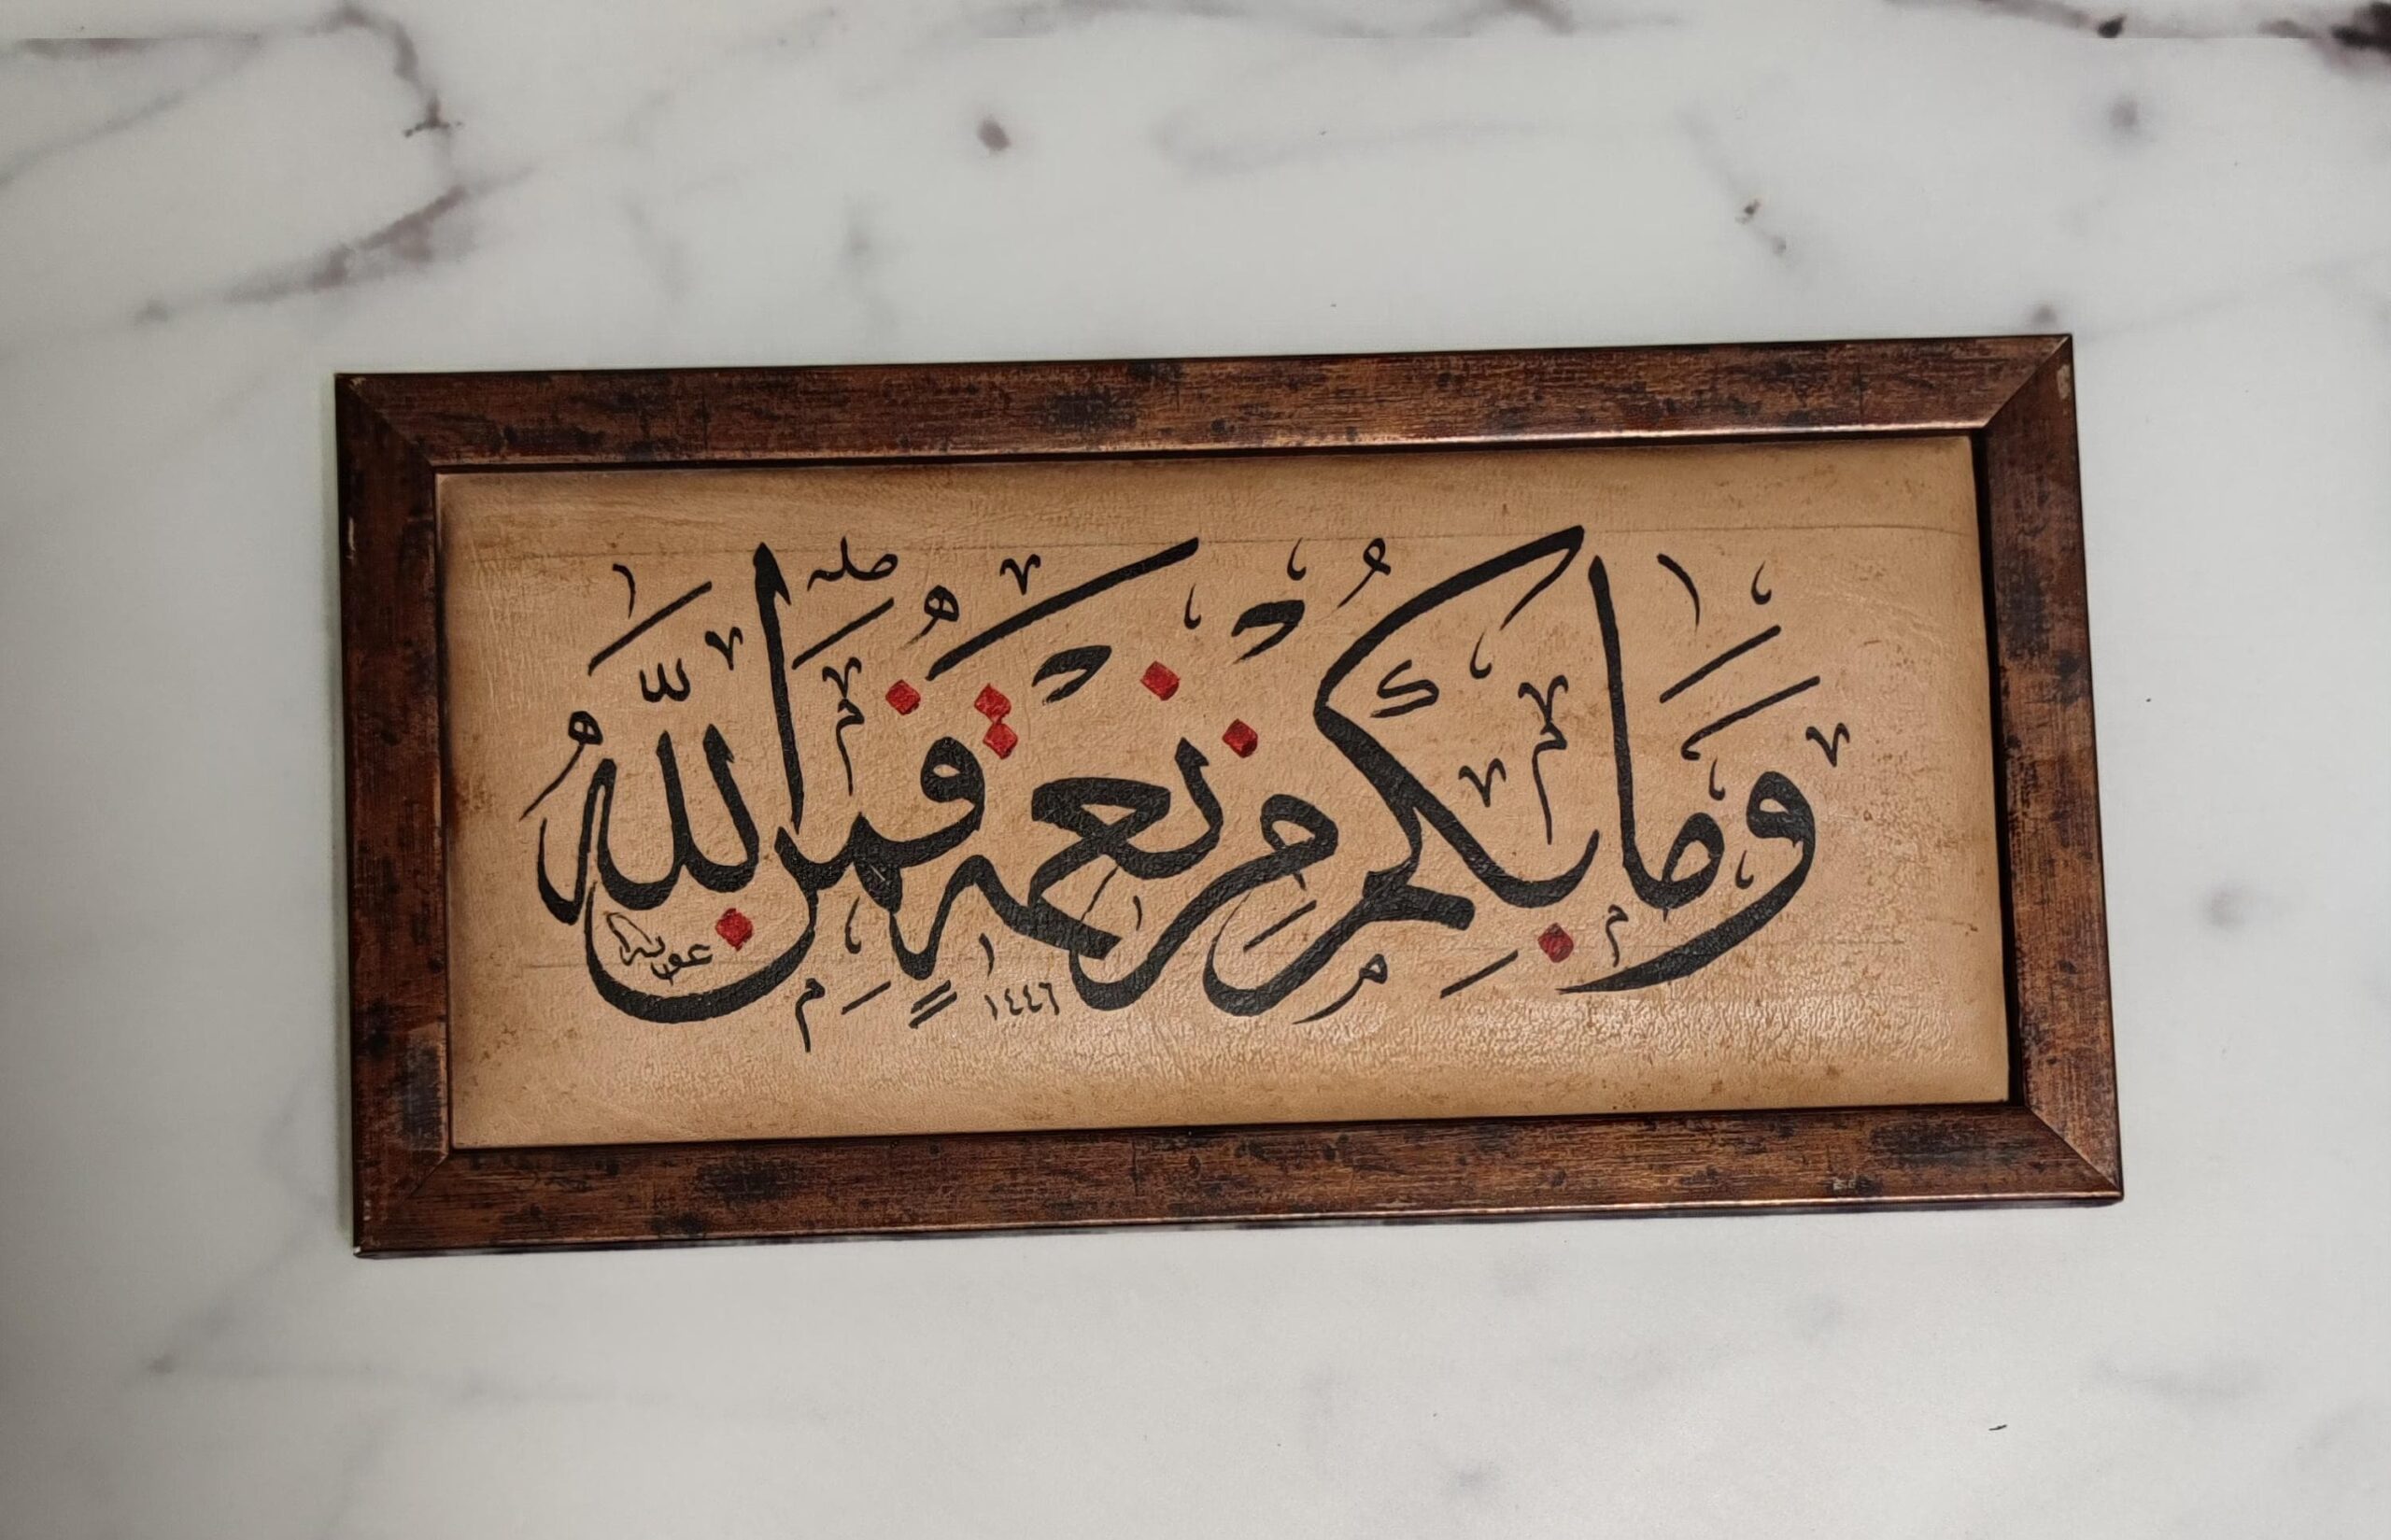 وَمَا بِكُمْ مِنْ نِعْمَةٍ فَمِنَ اللَّهِ
١٤٤٦